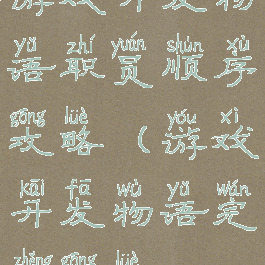 游戏开发物
yǔ zhí yuán shùn xù
语职员顺序
gōng lüè yóu xì
攻略(游戏
kāi fā wù yǔ wán
开发物语完
zhěng gōng lüè